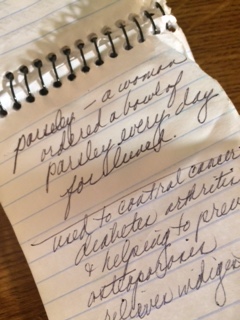 parsley – a woman
ordered a bowl of
parsley every day
for lunch.
used to control cancer
diabetes arthritis
& helping to prev
osteoporosis
relieves indiges